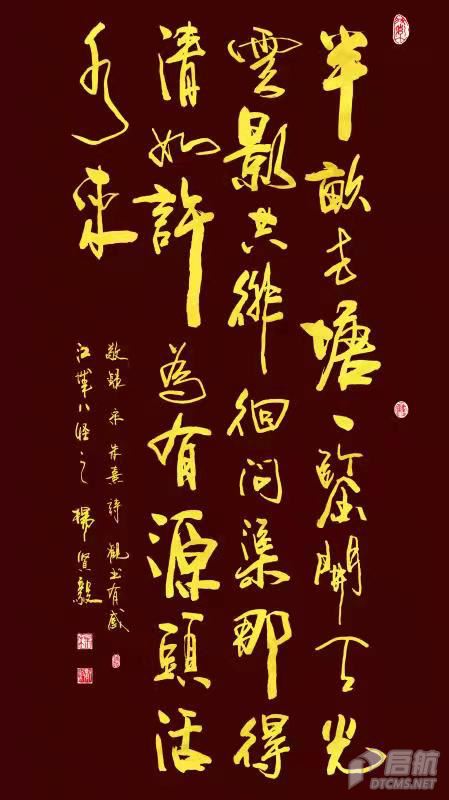 半畝方塘一鑒開天光
雲影共徘徊問渠那得
清如許為有源頭活
水來
敬録宋朱熹詩觀書有感
江漢八怪之楊賢毅
启航
DTCMS.NET